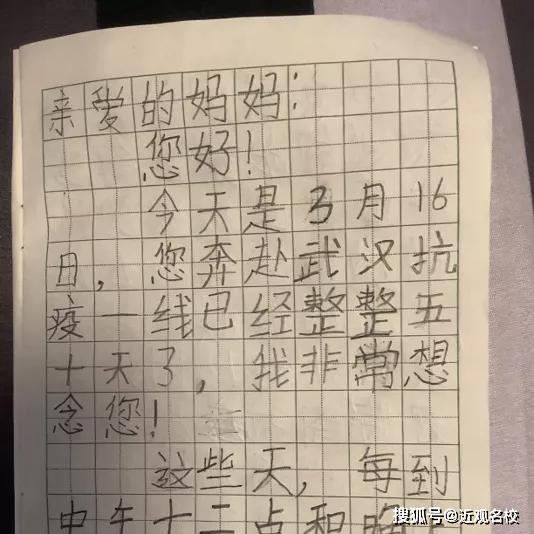 亲爱的妈妈：
您好！
今天是3月16
日，您奔赴武汉抗
疫一线已经整整五
十天了，我非常想
念您！
这些天，每到
中午十二点和晚
搜狐号@近观名校